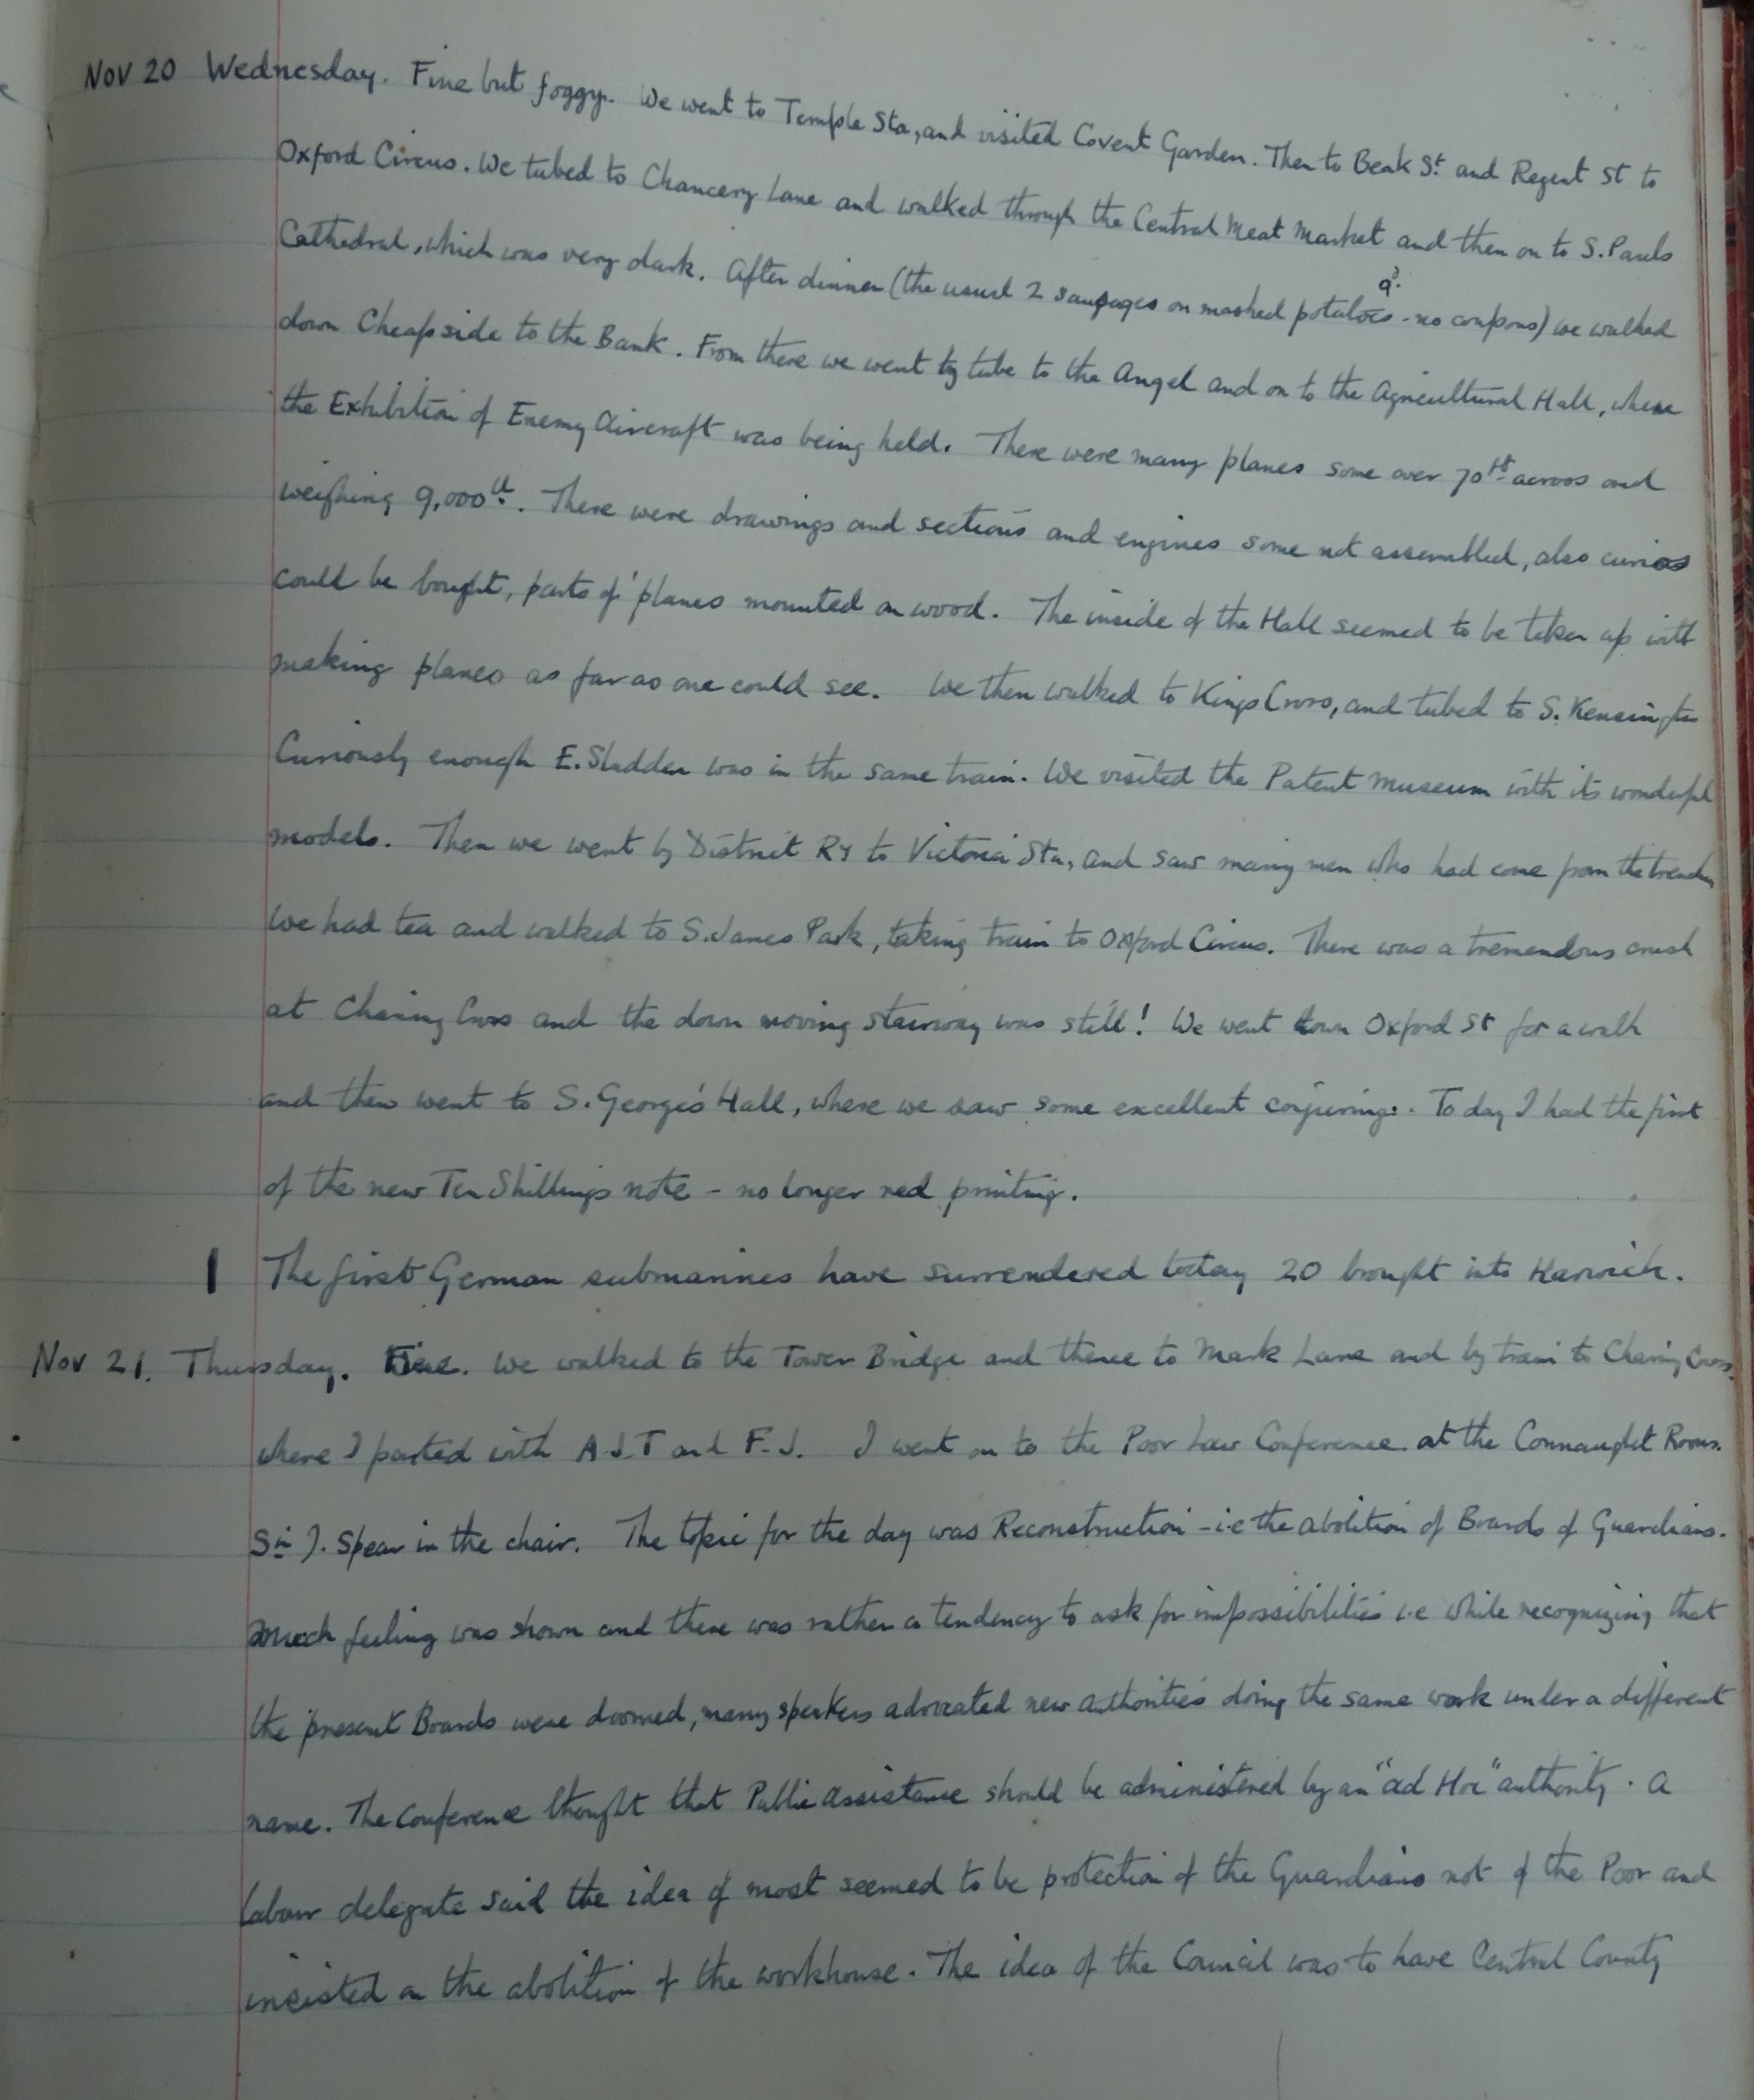 Nov 20 Wednesday. Fine but foggy. We went to Temple Sta, and visited Covent Garden. Then to Beak St. and Regent St to
Oxford Circus. We tubed to Chancery Lane and walked through the Central Meat Market and then on to S. Pauls
Cathedral, which was very dark. After dinner (the usual 2 sausages on mashed potatoes 9d. - no coupons) we walked
down Cheapside to the Bank. From there we went by tube to the Angel and on to the Agricultural Hall, where
the Exhibition of Enemy Aircraft was being held. There were many planes some over 70ft across and
weighing 9,000lb. There were drawings and sections and engines some not assembled, also curios
could be bought, parts of 'planes mounted on wood. The inside of the Hall seemed to be taken up with
making planes as far as one could see. We then walked to Kings Cross, and tubed to S. Kensington
Curiously enough E. Sludden was in the same train. We visited the Patent Museum with its wonderful
models. Then we went by District Ry to Victoria Sta, and saw many men who had come from the trenches
We had tea and walked to S. James Park, taking train to Oxford Circus. There was a tremendous crush
at Charing Cross and the down moving stairway was still! We went down Oxford St for a walk
and then went to S. George's Hall, where we saw some excellent conjuring. Today I had the first
of the new Ten Shillings note - no longer red printing.
The first German submarines have surrendered today 20 brought into Harwich.
Nov 21. Thursday. Fine. We walked to the Tower Bridge and thence to Mark Lane and by train to Charing Cross,
where I parted with A.J.T and F.J. I went on to the Poor Law Conference at the Connaught Rooms.
Sir J. Spear in the chair. The topic for the day was Reconstruction - i.e the abolition of Boards of Guardians.
Much feeling was shown and there was rather a tendency to ask for impossibilities i.e while recognizing that
the present Boards were doomed, many speakers advocated new authorities doing the same work under a different
name. The Conference thought that Public Assistance should be administered by an "ad Hoc" authority. A
Labour delegate said the idea of most seemed to be protection of the Guardians not of the Poor and
insisted on the abolition of the workhouse. The idea of the Council was to have Central County